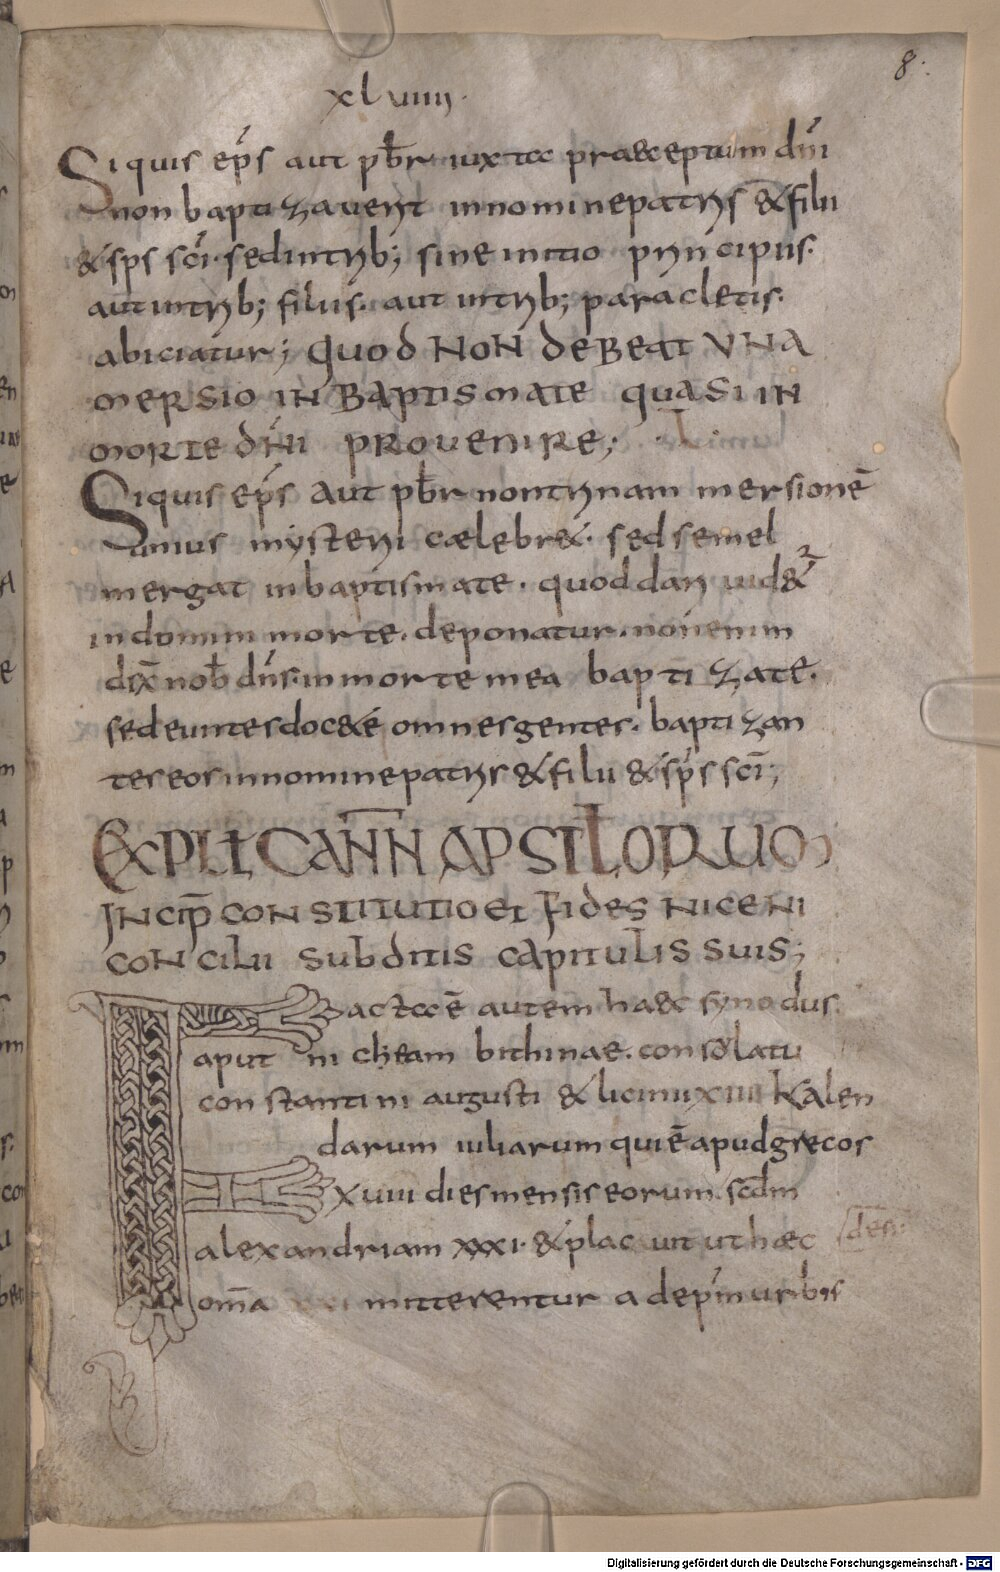 8.
xlviiii.
Si quis ep̄s aut pb̄r iuxta praeceptum dn̄i
non baptizaverit in nomine patris & filii
& sp̄s sc̄i. sed in trib; sine initio principiis.
aut in trib; filiis. aut in trib; paracletis.
abiciatur; quod NON deBeat VNA
mersio IN Baptismate quasi IN
morte dn̄i provenire;
Si quis ep̄s aut pb̄r non trinam mersionē
unius mysterii caelebr&. sed semel
mergat in baptismate. quod dari uid&ur
in domini morte. deponatur. non enim
dix̄ nob̄ dn̄s. in morte mea baptizate.
sed euntes doc&e omnes gentes. baptizan
tes eos in nomine patris & filii & sp̄s sc̄i;
EXPLIt CANN̄ APSTLORUM
INCIP̄ CONSTITUTIO et FIDES NICENI
CONCILII SUBDITIS CAPITULIS SUIS;
Facta ē autem haec synodus
aput nicheam bithinae. consolatu
constantini augusti & licinii xiiii kalen
darum iuliarum qui ē apud grecos
xviiii dies mensis eorum. scd̄m
alexandriam xxxi. & plac uit ut haec
om̄a mitterentur ad ep̄m urbis